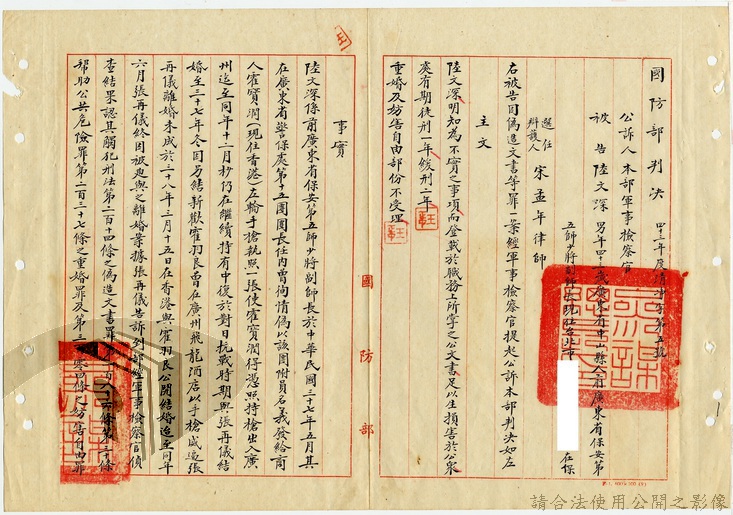 國防部判決
公訴人本部軍事檢察官
被告陸文深 男年四十歲廣東省中山縣人前廣東省保安第
五師少將副師長
在保
選任
辯護人
宋孟年律師
右被告因偽造文書等罪一案經軍事檢察官提起公訴本部判決如左
主文
陸文深明知為不實之事項而登載於職務上所掌之公文書足以生損害於公眾
處有期徒刑一年緩刑二年
重婚及妨害自由部份不受理
事實
陸文深係前廣東省保安第五師少將副師長於中華民國三十七年五月其
在廣東省警保處第十五團團長任內曾徇情偽以該團附員名義發給商
人霍寶潤(現住香港)左輪手槍執照一張使霍寶潤得憑照持槍出入廣
州迄至同年十二月杪仍在繼續持有中復於對日抗戰時期與張再儀結
婚至三十七年冬因另結新歡霍羽良曾在廣州飛龍酒店以手槍威逼張
再儀離婚未成於三十八年三月十五日在香港與霍羽良公開結婚迨至同年
六月張再儀終因被迫與之離婚業據張再儀告訴到部經軍事檢察官偵
查結果認其觸犯刑法第二百十四條之偽造文書罪
幫助公共危險罪第二百三十七條之重婚罪及第三百零四條之妨害自由罪
國防部
請合法使用公開之影像